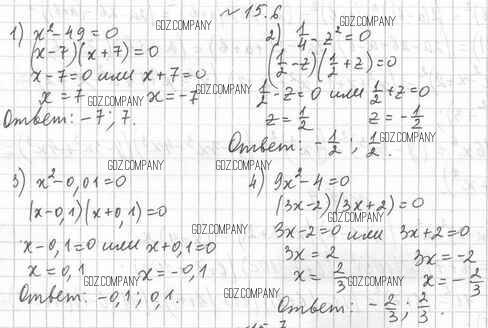 № 15.6
1) x² - 49 = 0
(x-7)(x+7) = 0
x-7=0 или x+7=0
x = 7 x = -7
Ответ: -7; 7.
2) 1/4 - z² = 0
(1/2 - z)(1/2 + z) = 0
1/2 - z = 0 или 1/2 + z = 0
z = 1/2 z = -1/2
Ответ: -1/2; 1/2.
3) x² - 0,01 = 0
(x-0,1)(x+0,1) = 0
x-0,1=0 или x+0,1=0
x = 0,1 x = -0,1
Ответ: -0,1; 0,1.
4) 9x² - 4 = 0
(3x-2)(3x+2) = 0
3x-2=0 или 3x+2=0
3x = 2 3x = -2
x = 2/3 x = -2/3
Ответ: -2/3; 2/3.
15.7
GDZ.COMPANY
GDZ.COMPANY
GDZ.COMPANY
GDZ.COMPANY
GDZ.COMPANY
GDZ.COMPANY
GDZ.COMPANY
GDZ.COMPANY
GDZ.COMPANY
GDZ.COMPANY
GDZ.COMPANY
GDZ.COMPANY
GDZ.COMPANY